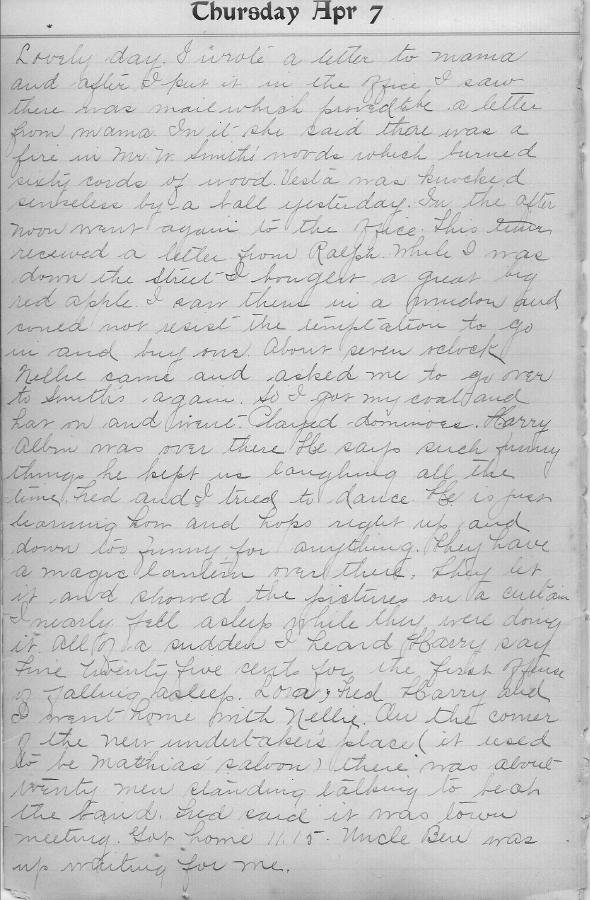 Thursday Apr 7
Lovely day. I wrote a letter to mama
and after I put it in the office I saw
there was mail which proved to be a letter
from mama. In it she said there was a
fire in Mr. W. Smith's woods which burned
sixty cords of wood. Vesta was knocked
senseless by a ball yesterday. In the after
noon went again to the office. This time
received a letter from Ralph. While I was
down the street I bought a great big
red apple. I saw them in a window and
could not resist the temptation to go
in and buy one. About seven oclock
Nellie came and asked me to go over
to Smith's again. So I got my coat and
hat on and went. Played dominoes. Harry
Albin was over there. He says such funny
things he kept us laughing all the
time. Fred and I tried to dance. He is just
learning how and hops right up and
down too funny for anything. They have
a magic lantern over there. They let
it and showed the pictures on a curtain
I nearly fell asleep while they were doing
it. All of a sudden I heard Harry say
Fine twenty five cents for the first offense
of falling asleep. Lora, Fred Harry and
I went home with Nellie. On the corner
of the new undertaker's place (it used
to be Mathias' saloon) there was about
twenty men standing talking to beat
the band. Fred said it was town
meeting. Got home 11.15. Uncle Ben was
up waiting for me.